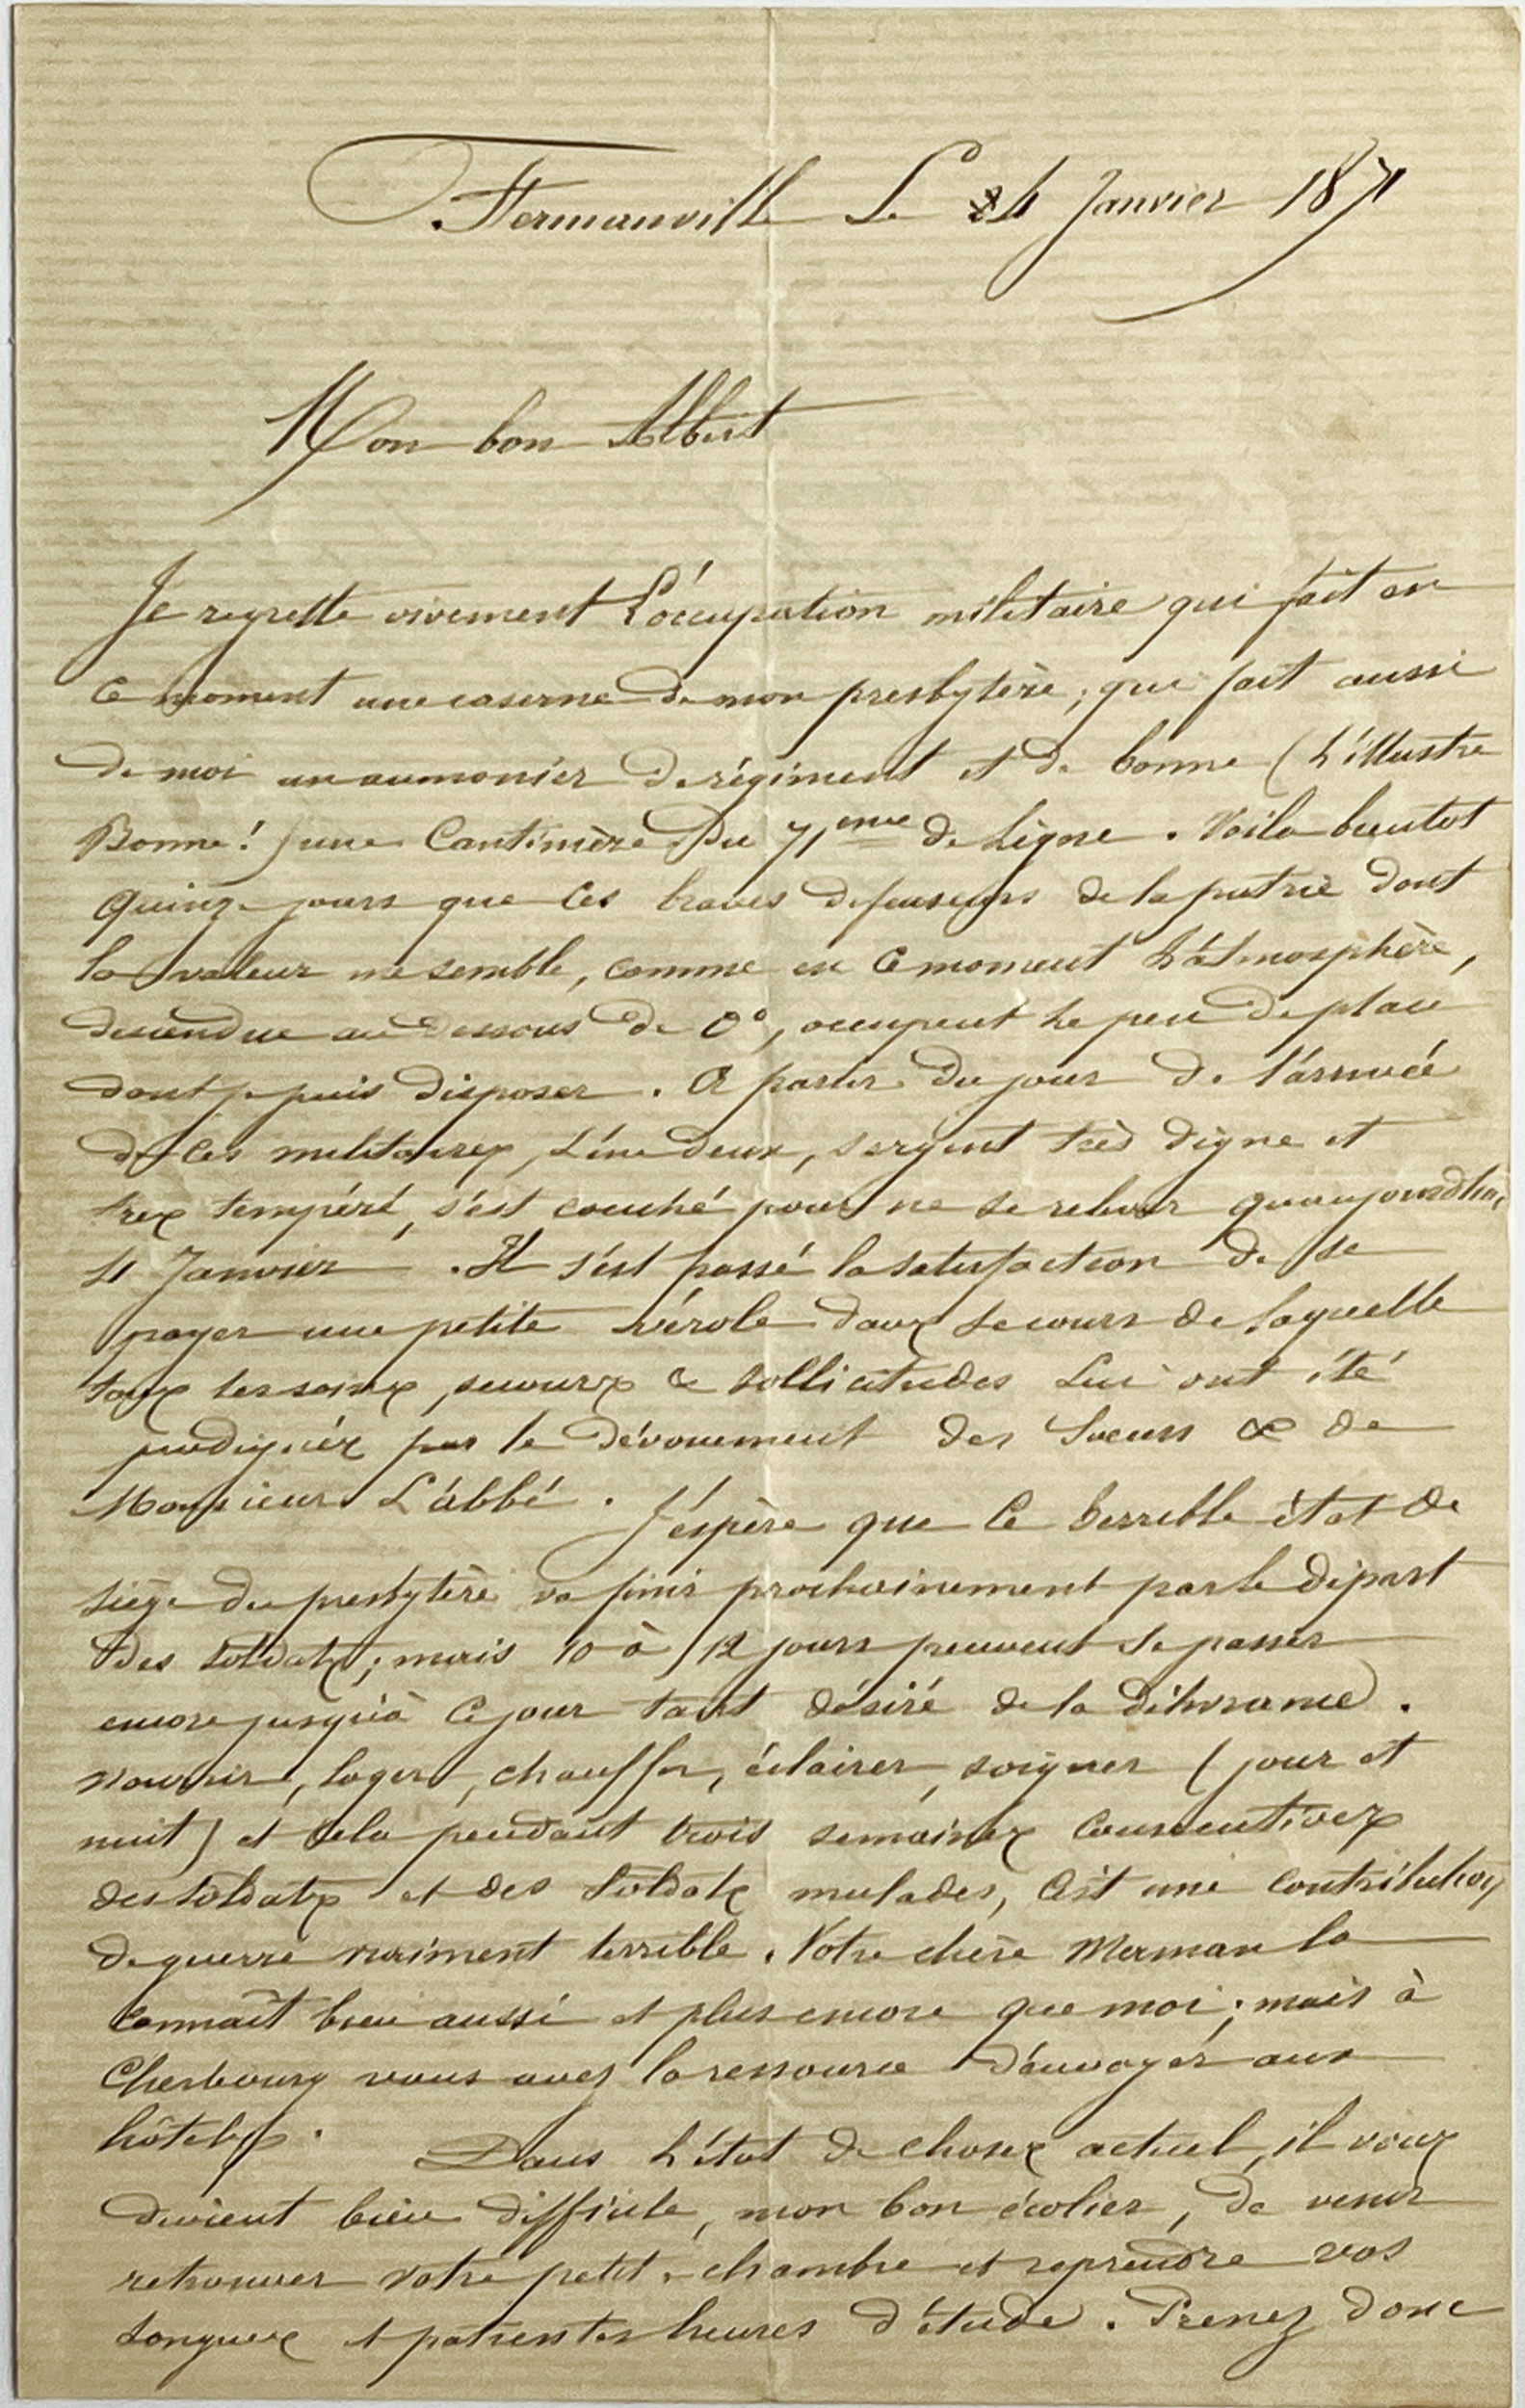 Fermanville Le 4 Janvier 1871
Mon bon Albert
Je regrette vivement L'occupation militaire qui fait en
ce moment une caserne de mon presbytère; qui fait aussi
de moi un aumonier de régiment et de bonne (L'illustre
Bonne!) une Cantinière Du 71eme de Ligne. Voila bientot
quinze jours que ces braves defenseurs de la patrie dont
la valeur me semble, comme en ce moment L'atmosphère,
descendue au dessous de 0°, occupent le peu de place
dont je puis disposer. A partir du jour de l'arrivée
de ces militaires, L'un deux, sergent très digne et
tres tempéré, s'est couché pour ne se relever qu'aujourd'hui
4 Janvier. Il s'est passé la satisfaction de se
payer une petite vérole dans le cours de laquelle
tous les soins, secours & sollicitudes Lui ont été
prodigués par le Dévouement des Sœurs & de
Monsieur L'abbé. J'espère que ce terrible état de
siège du presbytère va finir prochainement par le départ
des soldats; mais 10 à 12 jours peuvent se passer
encore jusqu'à ce jour tant désiré de la Délivrance.
Nourrir, loger, chauffer, éclairer, soigner (jour et
nuit) et cela pendant trois semaines consecutives
des soldats et des soldats malades, C'est une contribution
de guerre vraiment terrible. Votre chère Maman la
connaît bien aussi et plus encore que moi; mais à
Cherbourg vous avez la ressource d'envoyer aux
hôtels. Dans L'état de choses actuel, il vous
devient bien difficile, mon bon écolier, de venir
retrouver votre petite chambre et reprendre vos
longues et patientes heures d'étude. Prenez donc